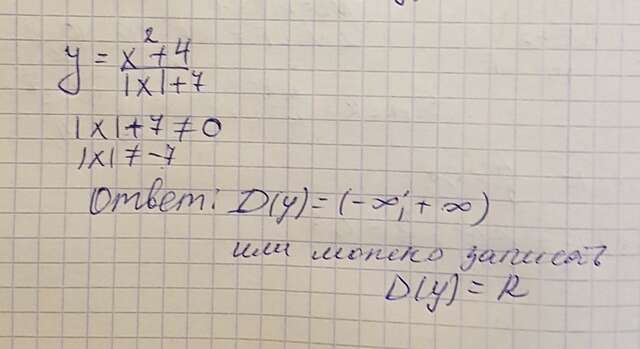 y = x²+4 / |x|+7
|x|+7≠0
|x|≠-7
Ответ: D(y)=(-∞;+∞)
или можно записать
D(y)=R